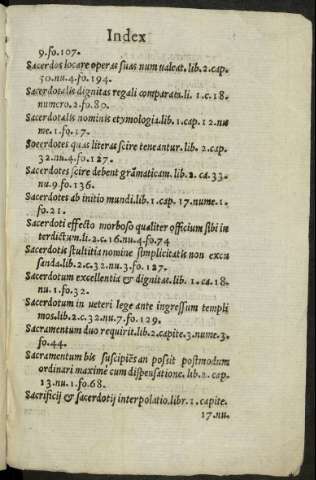 Index
9.fo.107.
Sacerdos locare operas suas num ualeat.lib.2.cap.
50.nu.4.fo.194.
Sacerdotalis dignitas regali comparata.li. 1.c.18.
numero.2.fo.80.
Sacerdotalis nominis etymologia.lib.1.cap.12.nu
me.1.fo.17.
Socerdotes quas literas scire teneantur.lib. 2.cap.
32.nu.4.fo.127.
Sacerdotes scire debent grãmaticam.lib.2. ca.33.
nu.9.fo.136.
Sacerdotes ab initio mundi.lib.1.cap.17.nume.1.
fo.21.
Sacerdoti effecto morboso qualiter officium sibi in
terdictum.li.2.c.16.nu.4.fo.74
Sacerdotis stultitia nomine simplicitatis non excu
sanda.lib.2.c.32.nu.3.fo.127.
Sacerdotum excellentia & dignitas.lib.1.ca.18.
nu.1.fo.32.
Sacerdotum in ueteri lege ante ingressum templi
mos.lib.2.c.32.nu.7.fo.129.
Sacramentum duo requirit.lib.2.capite.3.nume.3.
fo.44.
Sacramentum bis suscipiẽs an possit postmodum
ordinari maximè cum dispensatione.lib.2.cap.
13.nu.1.fo.68.
Sacrificij & sacerdotij interpolatio.libr.1.capite.
17.nu.